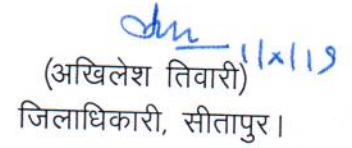 11/x/19
(अखिलेश तिवारी)
जिलाधिकारी, सीतापुर।